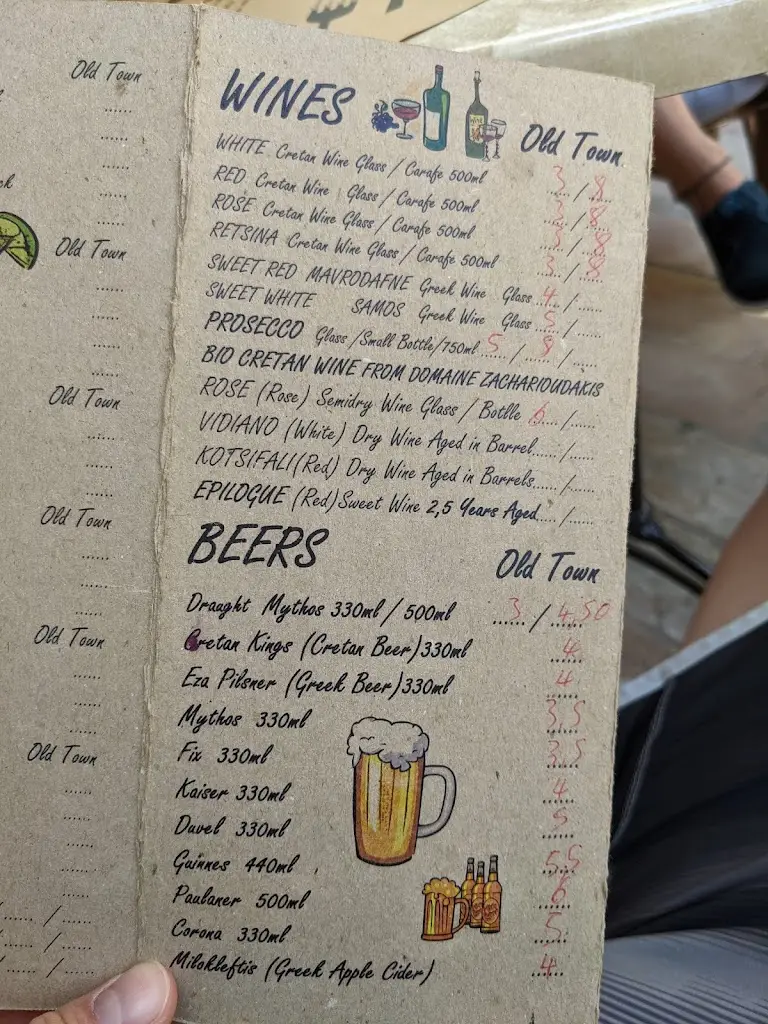 Old Town
Old Town
Old Town
Old Town
Old Town
Old Town
WINES
Old Town
WHITE Cretan Wine Glass / Carafe 500ml 3 / 8
RED Cretan Wine Glass / Carafe 500ml 3 / 8
ROSE Cretan Wine Glass / Carafe 500ml 3 / 8
RETSINA Cretan Wine Glass / Carafe 500ml 3 / 8
SWEET RED MAVRODAFNE Greek Wine Glass 4 /......
SWEET WHITE SAMOS Greek Wine Glass 5 /......
PROSECCO Glass /Small Bottle/750ml 5 / 8 /......
BIO CRETAN WINE FROM DOMAINE ZACHARIOUDAKIS
ROSE (Rose) Semidry Wine Glass / Botlle 6 /......
VIDIANO (White) Dry Wine Aged in Barrel....../......
KOTSIFALI(Red) Dry Wine Aged in Barrels....../......
EPILOGUE (Red)Sweet Wine 2,5 Years Aged...../......
BEERS
Old Town
Draught Mythos 330ml / 500ml 3 / 4.50
Cretan Kings (Cretan Beer)330ml 4
Eza Pilsner (Greek Beer)330ml 4
Mythos 330ml 3,5
Fix 330ml 3,5
Kaiser 330ml 4
Duvel 330ml 5
Guinnes 440ml 5,5
Paulaner 500ml 6
Corona 330ml 5
Milokleftis (Greek Apple Cider) 4